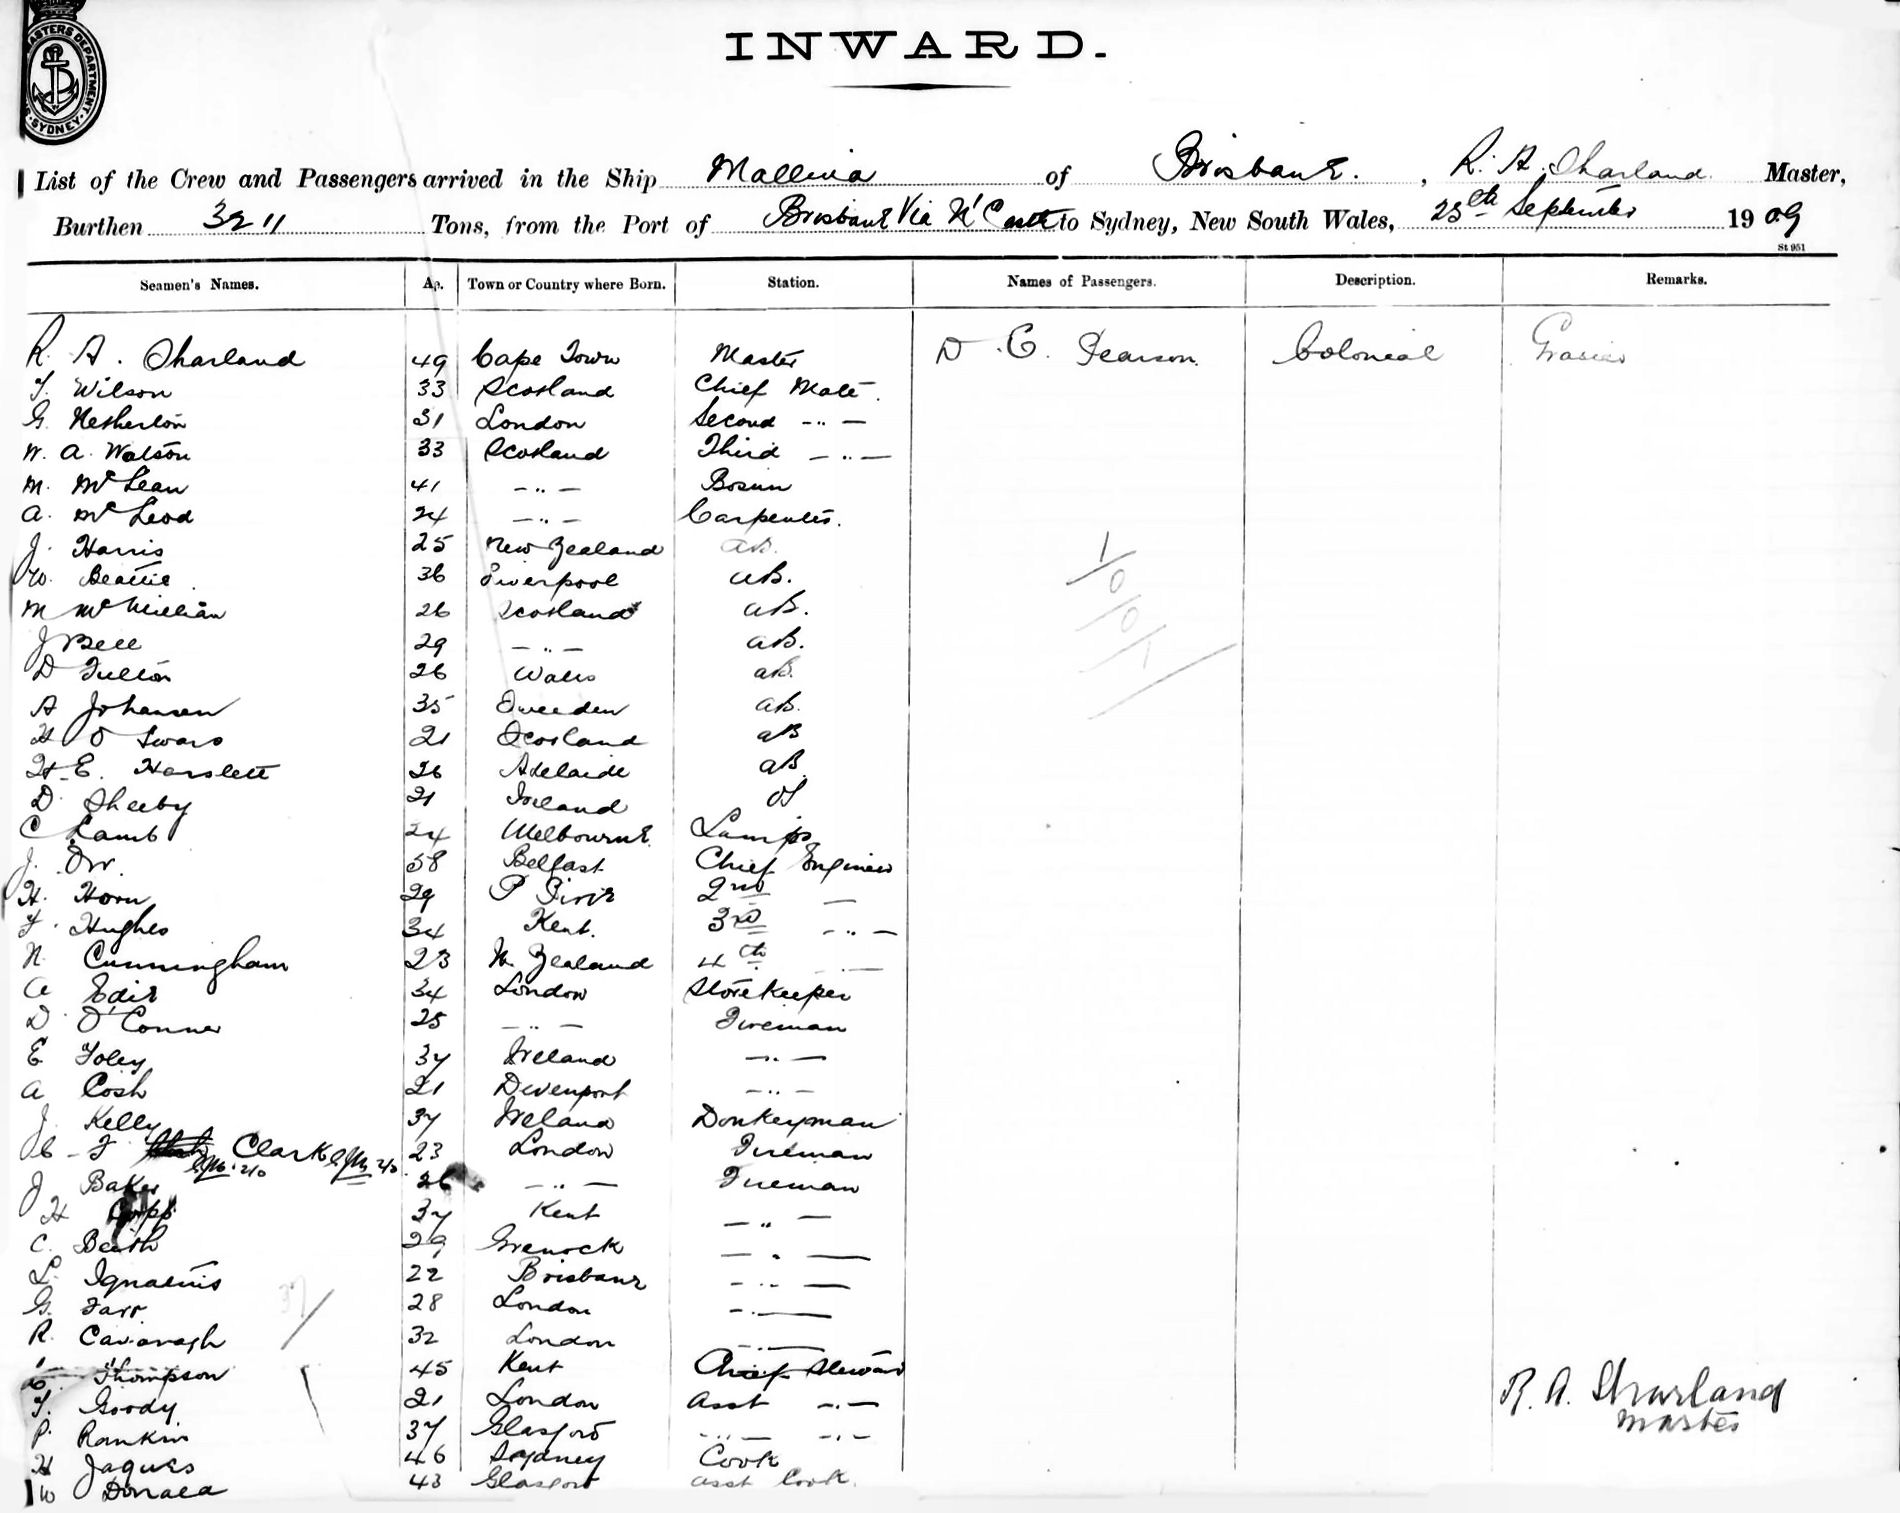 MASTERS DEPARTMENT
SYDNEY
INWARD.
List of the Crew and Passengers arrived in the Ship Mallina of Brisbane. , R. A. Sharland Master,
Burthen 3211 Tons, from the Port of Brisbane Via N'Castle to Sydney, New South Wales, 25th September 1909
St 951
Seamen's Names. Ag. Town or Country where Born. Station. Names of Passengers. Description. Remarks.
R. A. Sharland 49 Cape Town Master D. C. Pearson Colonial
T. Wilson 33 Scotland Chief Mate.
G. Netherton 31 London Second -..-
W. A. Watson 33 Scotland Third -..-
M. McLean 41 -..- Bosun
A. McLeod 24 -..- Carpenter.
J. Harris 25 New Zealand AB.
W. Beattie 36 Liverpool AB.
M McMillian 26 Scotland AB.
J Bell 29 -..- AB.
D Fulton 26 Wales AB.
A Johansen 35 Sweeden AB.
H O Swars 21 Scotland AB
H. E. Harslett 26 Adelaide AB
D. Sheeby 21 Ireland OS
C Lamb 24 Melbourne Lamps
J. Orr. 58 Belfast Chief Engineer
H. Horn 29 P Pirie 2nd -
F. Hughes 34 Kent. 3rd -..-
N. Cunningham 23 N. Zealand 4th -..-
A Edie 34 London Storekeeper
D. O'Conner 25 -..- Fireman
E Foley 37 Ireland -..-
A Cosh 21 Devenport -..-
J. Kelly 37 Ireland Donkeyman
C. F Clark 23 London Fireman
J Baker 26 -..- Fireman
H 37 Kent -..-
C. Beith 29 Grenock -..-
L. Ignatius 22 Brisbane -..-
G. Farr. 28 London -..-
R. Cavanagh 32 London -..-
Thompson 45 Kent Chief Steward
T. Goody 21 London Asst -..-
P. Rankin 37 Glasgow -..- -..-
H Jaques 46 Sydney Cook
W Donald 43 Glasgow Asst Cook.
R. A. Sharland
Master